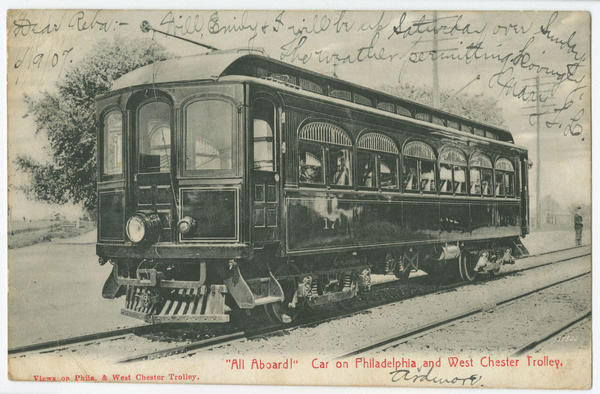 Dear Reba:- Will Emily & I will be up Saturday over Sunday
5/19/07.
The weather permitting Lovingly
Mary
L.
14
"All Aboard!" Car on Philadelphia and West Chester Trolley.
Ardmore.
Views on Phila. & West Chester Trolley.